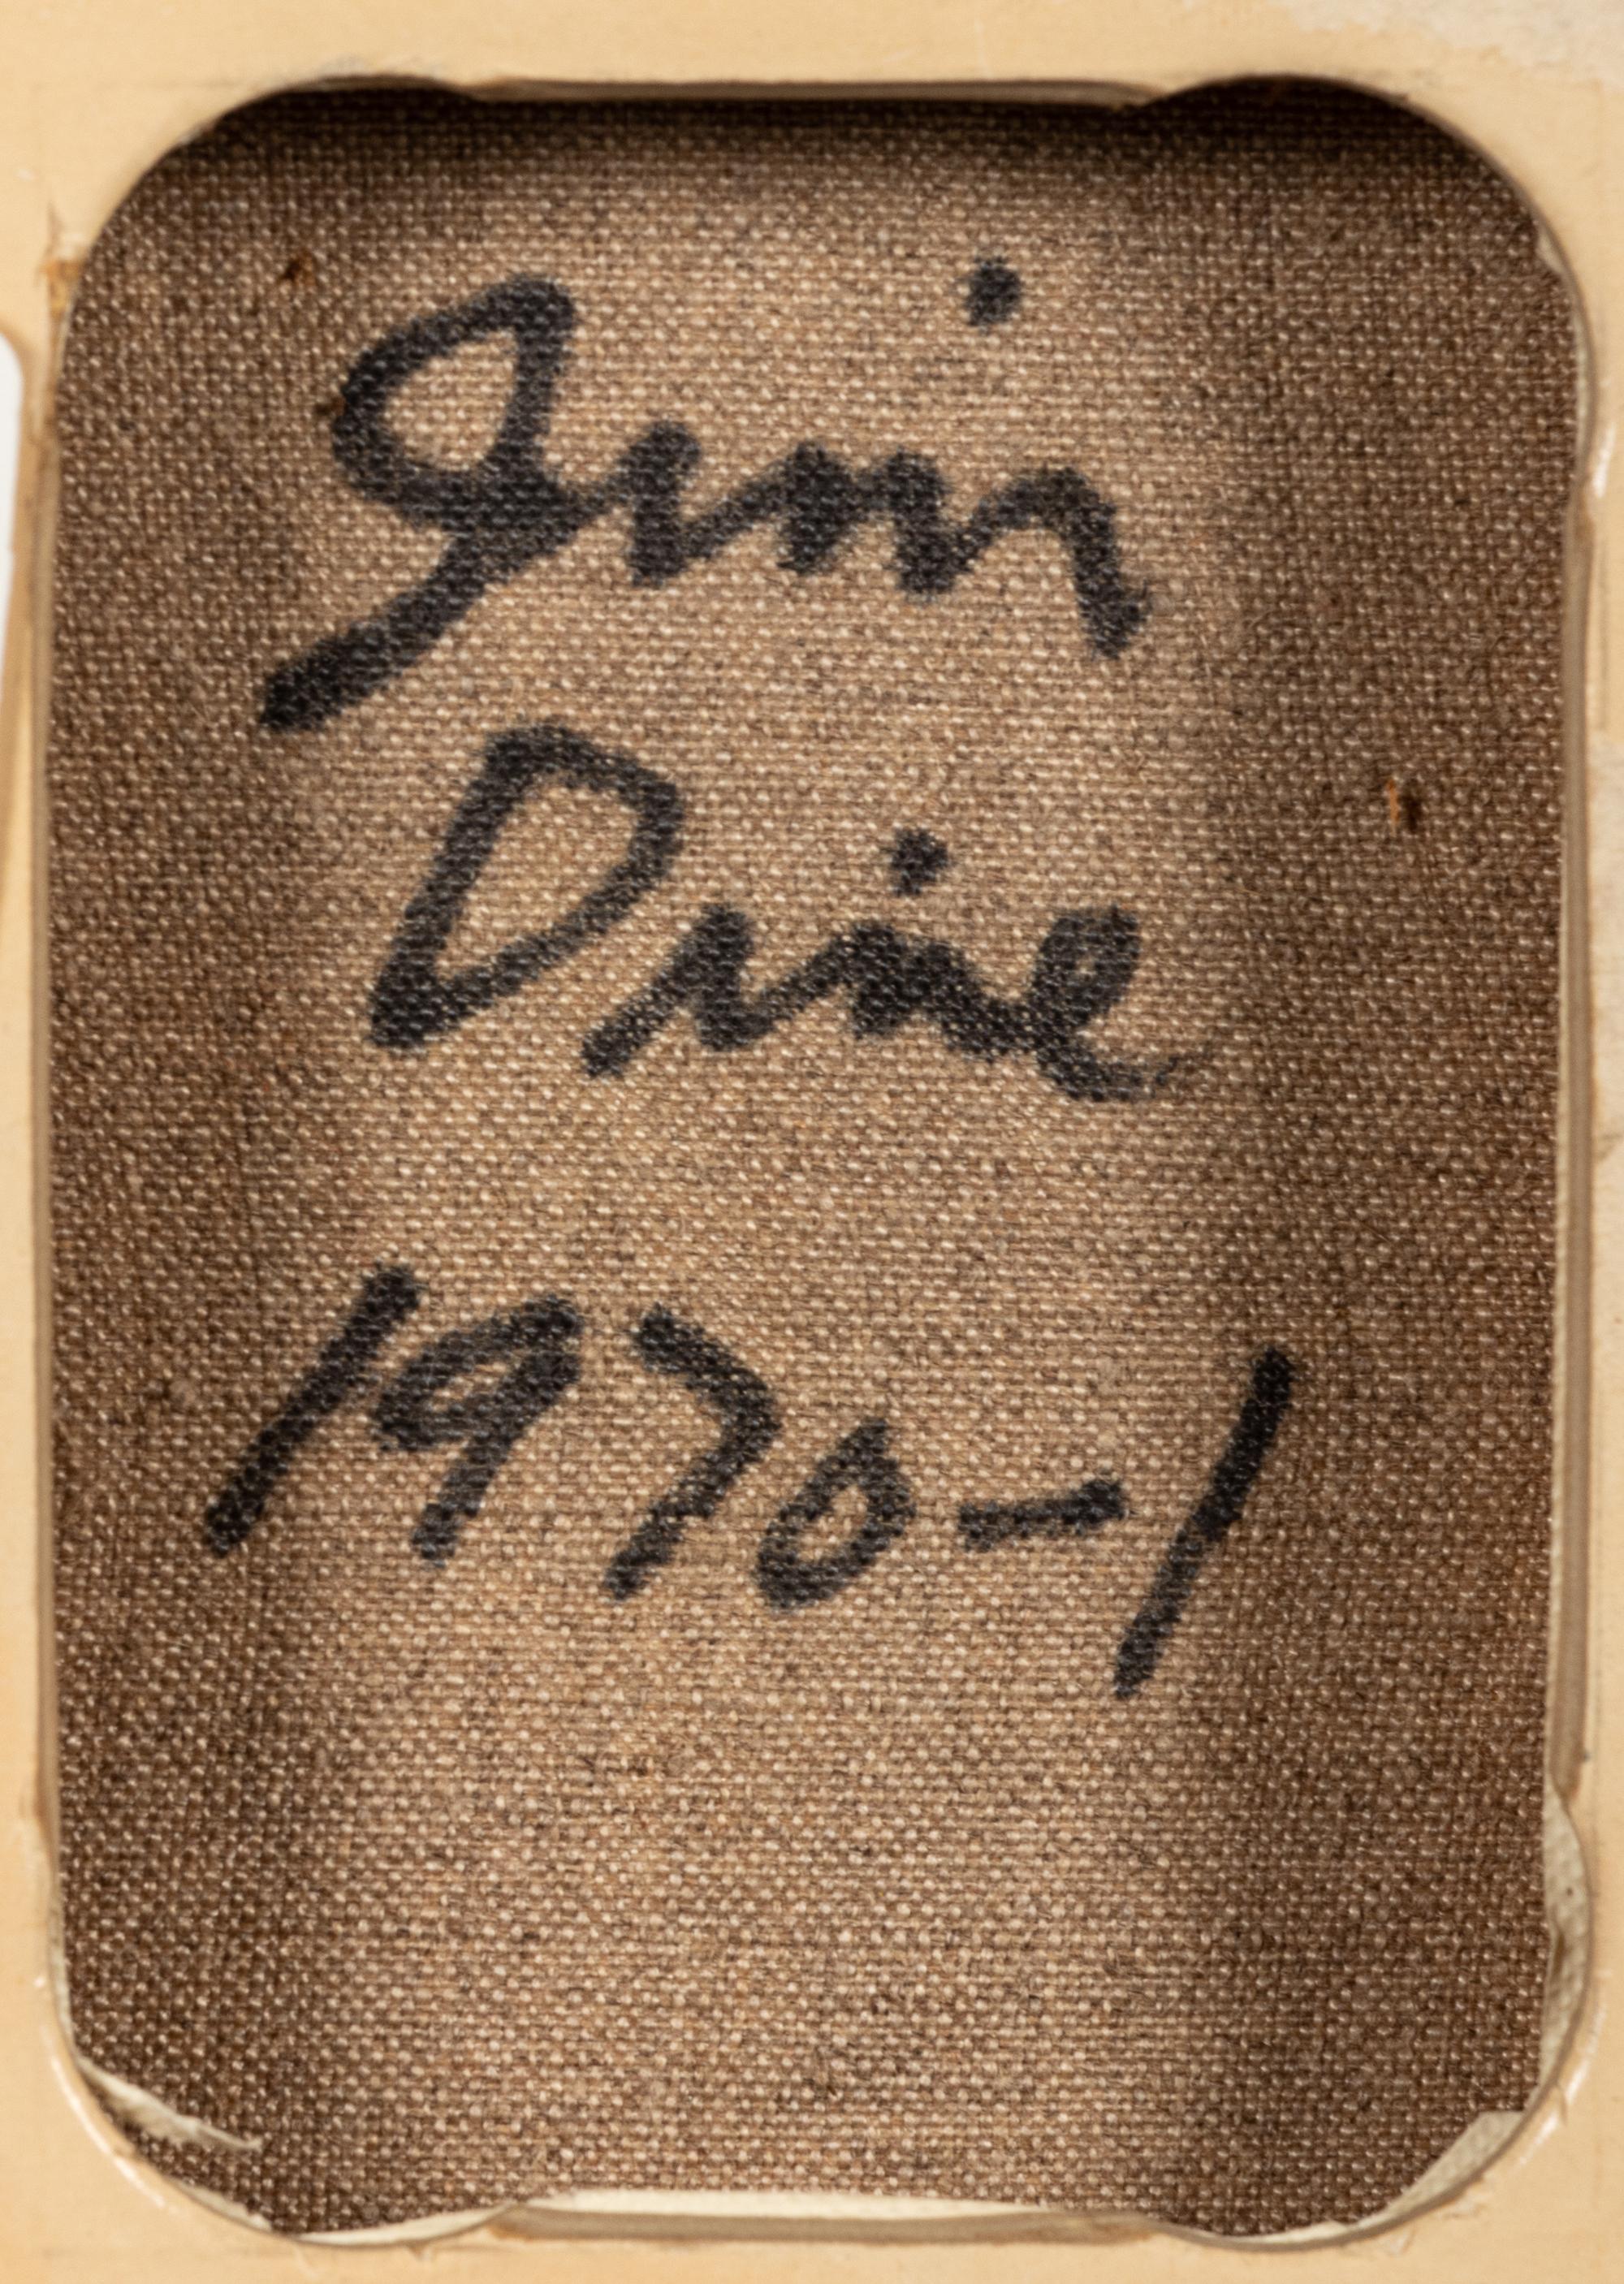 Jim
Dine
1970-1